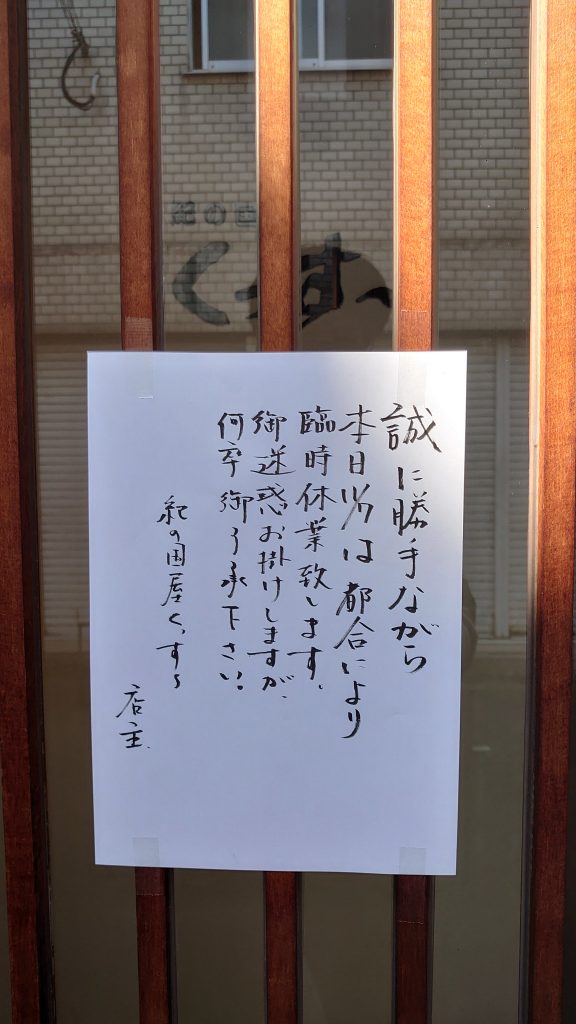 誠に勝手ながら
本日は都合により
臨時休業致します。
御迷惑お掛けしますが、
何卒御了承下さい。
紀の国屋くっすん
店主
紀の国
くっす